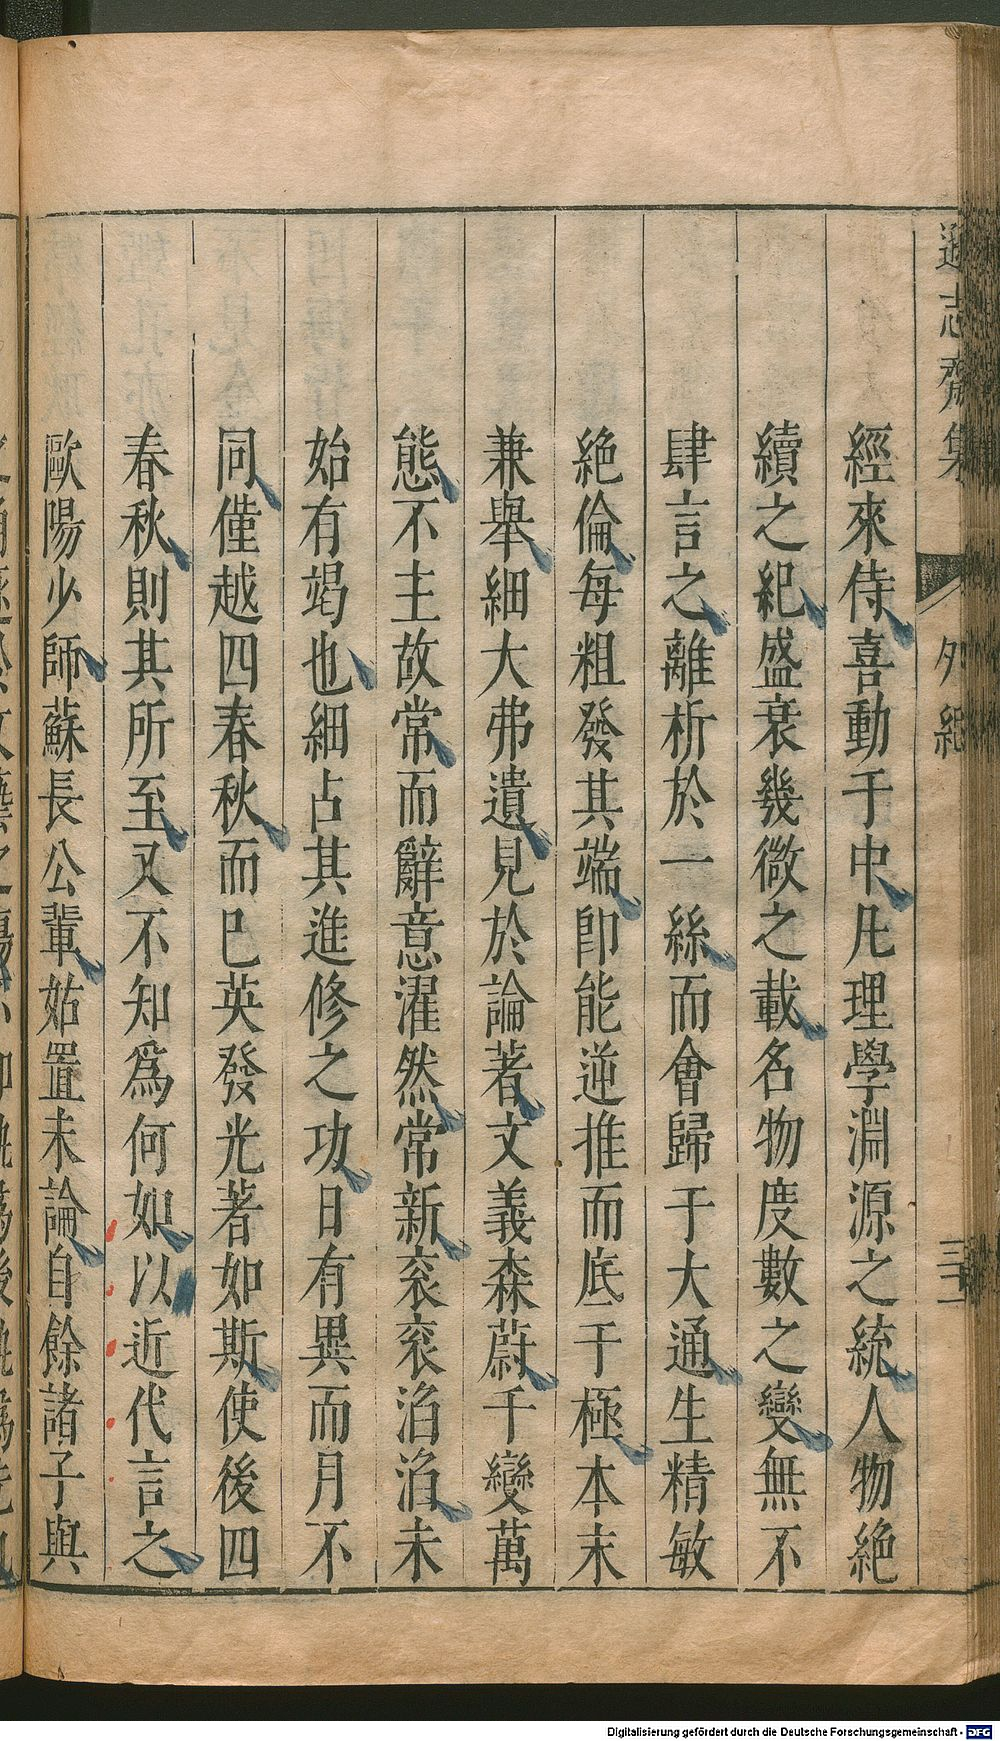 遜志齋集
外紀
經來侍喜動于中凡理學淵源之統人物絶
續之紀盛衰幾微之載名物度數之變無不
肆言之離析於一絲而會歸于大通生精敏
絶倫每粗發其端即能逆推而底于極本末
兼舉細大弗遺見於論著文義森蔚千變萬
態不主故常而辭意濯然常新衮衮滔滔未
始有竭也細占其進修之功日有異而月不
同僅越四春秋而巳英發光著如斯使後四
春秋則其所至又不知爲何如以近代言之
歐陽少師蘇長公輩姑置未論自餘諸子與
Digitalisierung gefördert durch die Deutsche Forschungsgemeinschaft - DFG